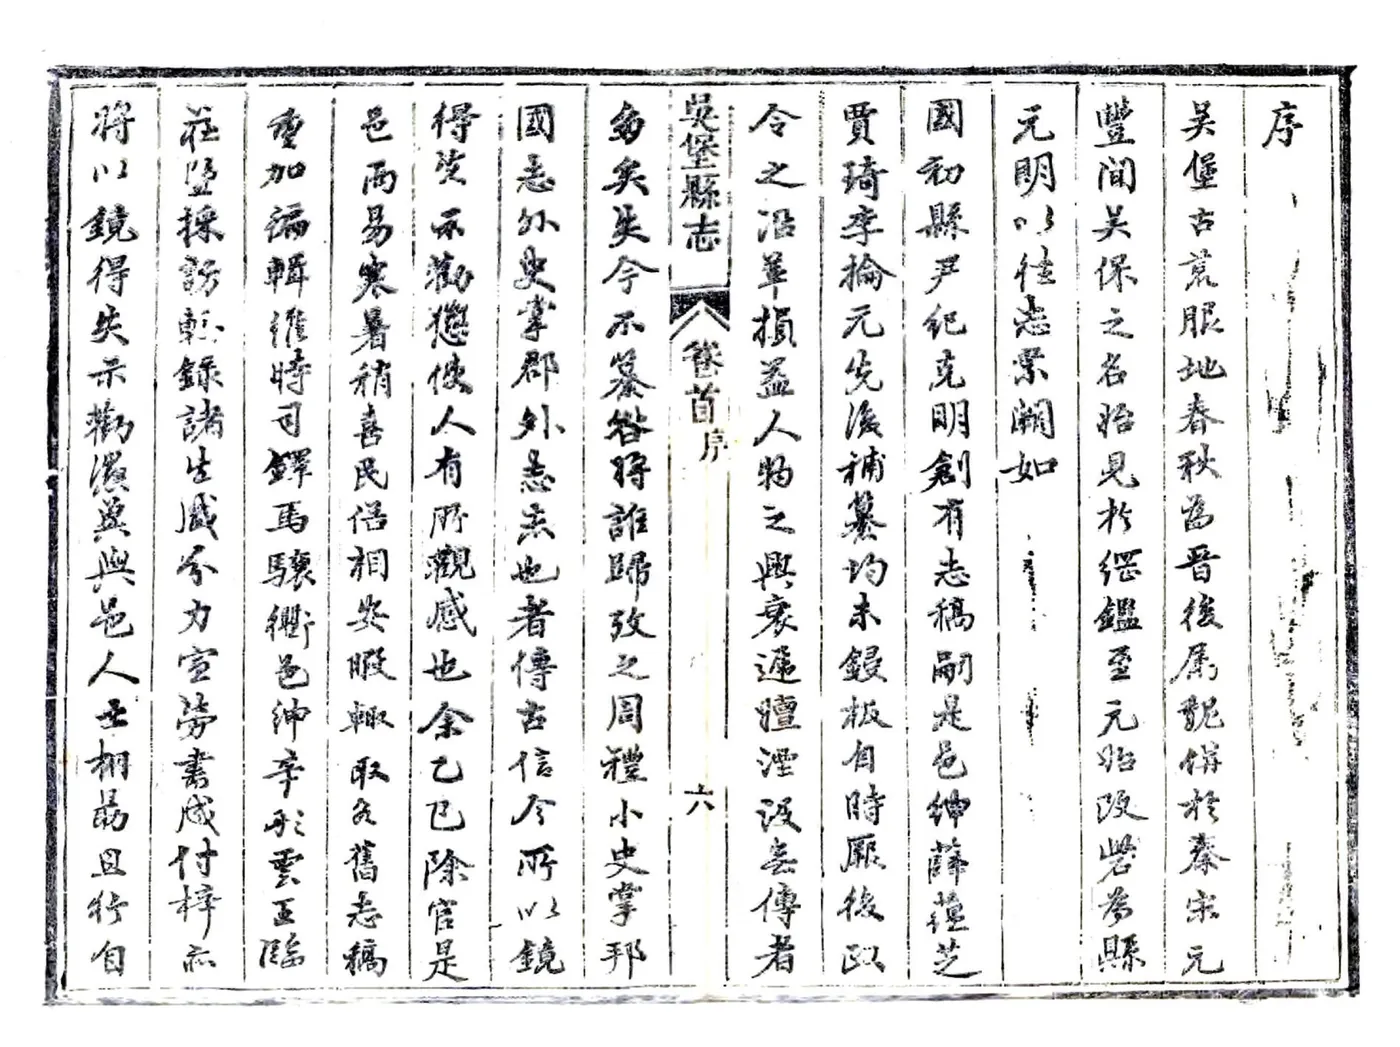 序
吴堡古荒服地春秋為晉後属魏併於秦宋元
豐間吴保之名始見於綱鑑至元始改砦為縣
元明以徃志業闕如
國初縣尹紀克明創有志稿嗣是邑紳薛蘊芝
賈琦李掄元先後補纂均未鋟板自時厥後政
令之沿革損益人物之興衰遞嬗湮没無傳者
吳堡縣志
卷首
序
六
多矣失今不纂咎將誰歸攷之周禮小史掌邦
國志外史掌郡外志志也者傳古信今所以鏡
得失示勸懲使人有所觀感也余乙巳除官是
邑雨易寒暑稍喜民侣相安暇輙取久舊志稿
重加編輯維時司鐸馬驤衢邑紳辛彤雲王臨
莊暨採訪輇錄諸生咸分力宣勞書成付梓亦
將以鏡得失示勸懲冀與邑人士栩勗且行自